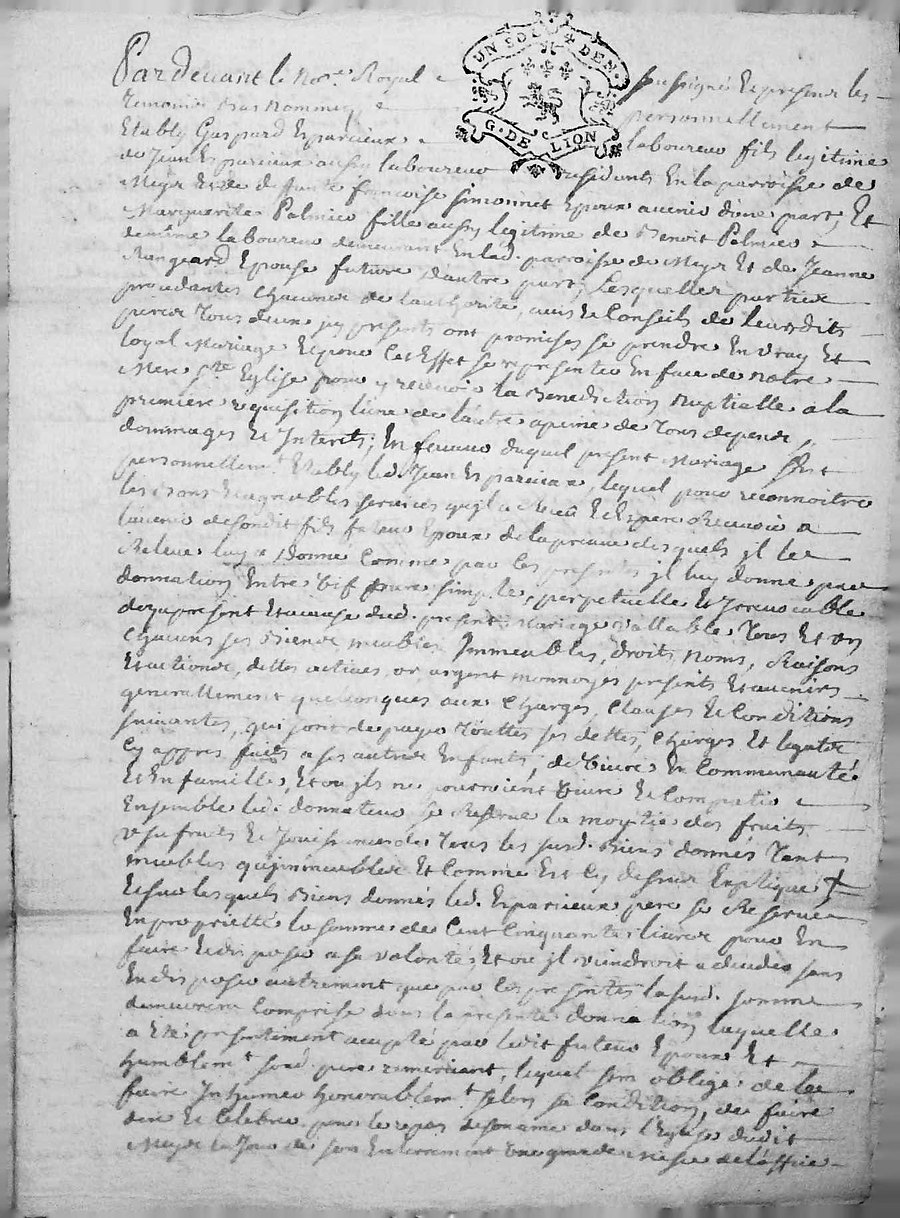 UN SOL DEN.
G. DE LION
Par devant le No.re Royal soussigné Et presence les
Temoins Bas nommez personnellement
Etably Gaspard Esparcieux laboureur fils legitime
de Jean Esparcieux aussy laboureur residants En la paroisse de
Meys Et de defunte francoise simonnet Epoux avenir d'une part, Et
Marguerite Palmier fille aussy legitime de Benoit Palmier
demême laboureur demeurant En lad. paroisse de Meys Et de Jeanne
Epouse future d'autre part, Lesquelles parties
procedantes chacune de l'authorité, avis Et Conseils de leursdits
peres Tous deux jcy presents ont promises se prendre En vray Et
loyal Mariage Et pour Cet Effet se representer En face de notre
Mere S.te Eglise pour y recevoir la Benediction Nuptialle a la
premiere requisition l'une de l'autre apeine de Tous depens,
dommages Et Interets; En faveur duquel present Mariage s'est
personnellem.t Etably led. Jean Esparcieux, lequel pour reconnoitre
les Bons Et agreables services qu'jl a Receu Et Espere Recevoir a
l'avenir desondit fils futeur Epoux de la preuve desquels jl le
Releve luy a Donné Comme par Ces presentes jl luy donne par
donnation Entre Vif pure simple, perpetuelle Et Irrevocable
deza present Etacause dud. present Mariage vallable Tous Et un
Chacuns ses Biens meubles, Immeubles, droits, Noms, Raisons
Et actions, dettes actives, or argent monnoyes presents Et avenirs
generallement quelconques aux Charges, Clauses Et Conditions
suivantes, qui sont de payer Touttes ses dettes, Charges Et legats
Cy appres faits a ses autres Enfants, de Vivre En Communauté
Et En famille, Et ou jls ne pourroient Vivre Et Compatir
Ensemble led. donnateur se Reserve la moytié des fruits
usufruits Et Jouissances de Tous les susd. Biens donnés Tant
meubles qu'jmmeubles Et Comme Est Cy dessus Expliqué
Et sur lesquels Biens donnés led. Esparcieux pere se Reserve
En proprietté la somme de Cent Cinquante livres pour En
faire Et disposer a sa volonté, Et ou jl viendroit a deceder sans
En disposer autrement que par Ces presentes la susd. somme
demeurera Comprise dans la presente donnation laquelle
a Eté presentement accepté par ledit futeur Epoux Et
humblem.t sond. pere remerciant, lequel s'est obligé de le
faire Inhumer honorablem.t selon sa Condition, de faire
dire Et Celebrer pour le repos de son ame dans l'Eglise dudit
Meys le Jour de son Enterrement une grande Messe de l'office